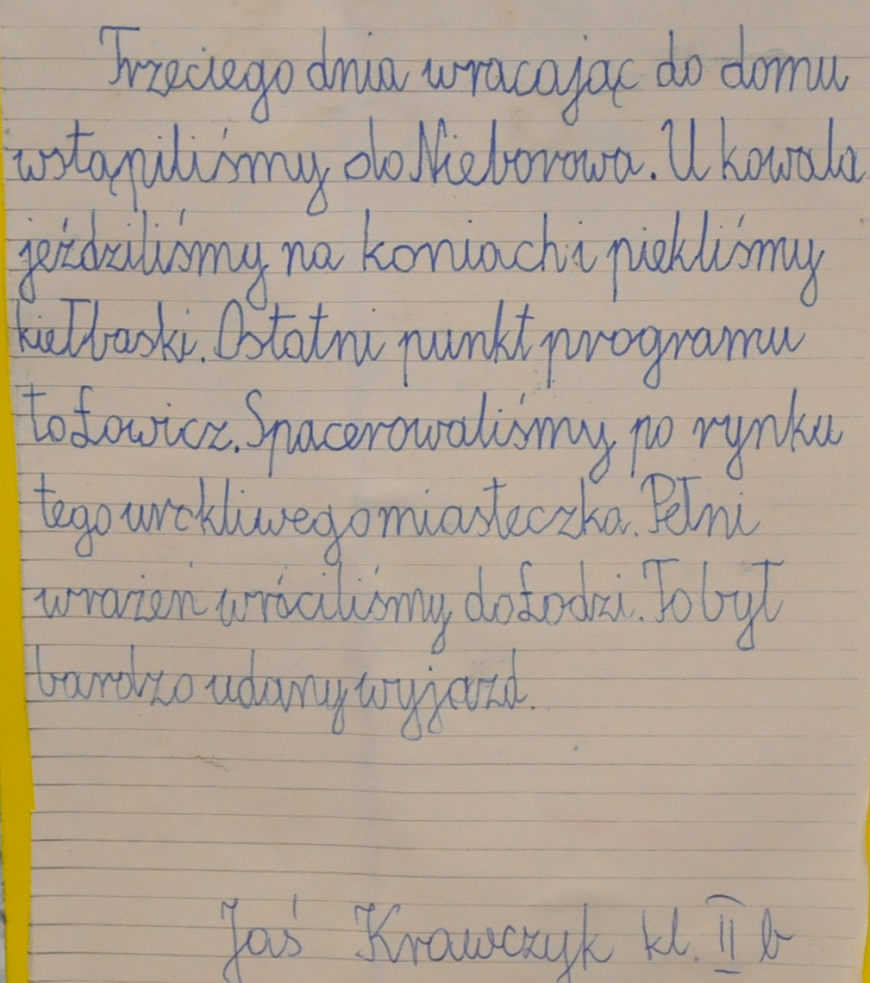 Trzeciego dnia wracając do domu
wstąpiliśmy do Nieborowa. U kowala
jeździliśmy na koniach i piekliśmy
kiełbaski. Ostatni punkt programu
to Łowicz. Spacerowaliśmy po rynku
tego urokliwego miasteczka. Pełni
wrażeń wróciliśmy do Łodzi. To był
bardzo udany wyjazd.
Jaś Krawczyk kl. II b